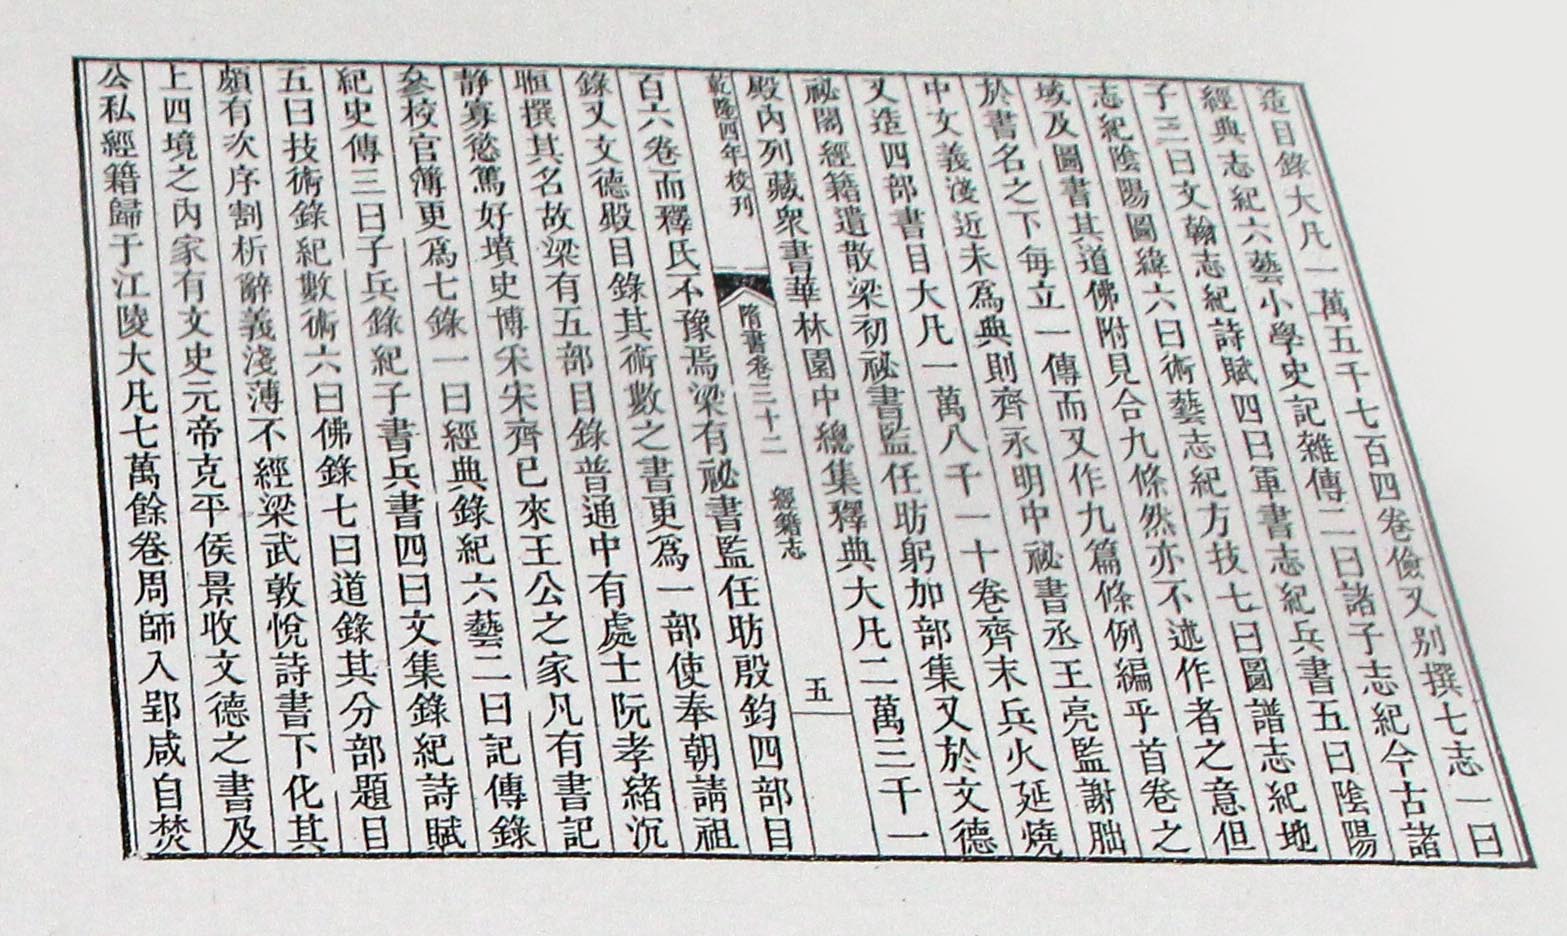 造目錄大凡一萬五千七百四卷儉又別撰七志一曰
經典志紀六藝小學史記雜傳二曰諸子志紀今古諸
子三曰文翰志紀詩賦四曰軍書志紀兵書五曰陰陽
志紀陰陽圖緯六曰術藝志紀方技七曰圖譜志紀地
域及圖書其道佛附見合九條然亦不述作者之意但
於書名之下每立一傳而又作九篇條例編乎首卷之
中文義淺近未爲典則齊永明中祕書丞王亮監謝朏
又造四部書目大凡一萬八千一十卷齊末兵火延燒
祕閣經籍遺散梁初祕書監任昉躬加部集又於文德
殿內列藏衆書華林園中總集釋典大凡二萬三千一
乾隆四年校刊
隋書卷三十二 經籍志
五
百六卷而釋氏不豫焉梁有祕書監任昉殷鈞四部目
錄又文德殿目錄其術數之書更爲一部使奉朝請祖
暅撰其名故梁有五部目錄普通中有處士阮孝緒沉
靜寡慾篤好墳史博采宋齊已來王公之家凡有書記
參校官簿更爲七錄一曰經典錄紀六藝二曰記傳錄
紀史傳三曰子兵錄紀子書兵書四曰文集錄紀詩賦
五曰技術錄紀數術六曰佛錄七曰道錄其分部題目
頗有次序割析辭義淺薄不經梁武敦悅詩書下化其
上四境之內家有文史元帝克平侯景收文德之書及
公私經籍歸于江陵大凡七萬餘卷周師入郢咸自焚